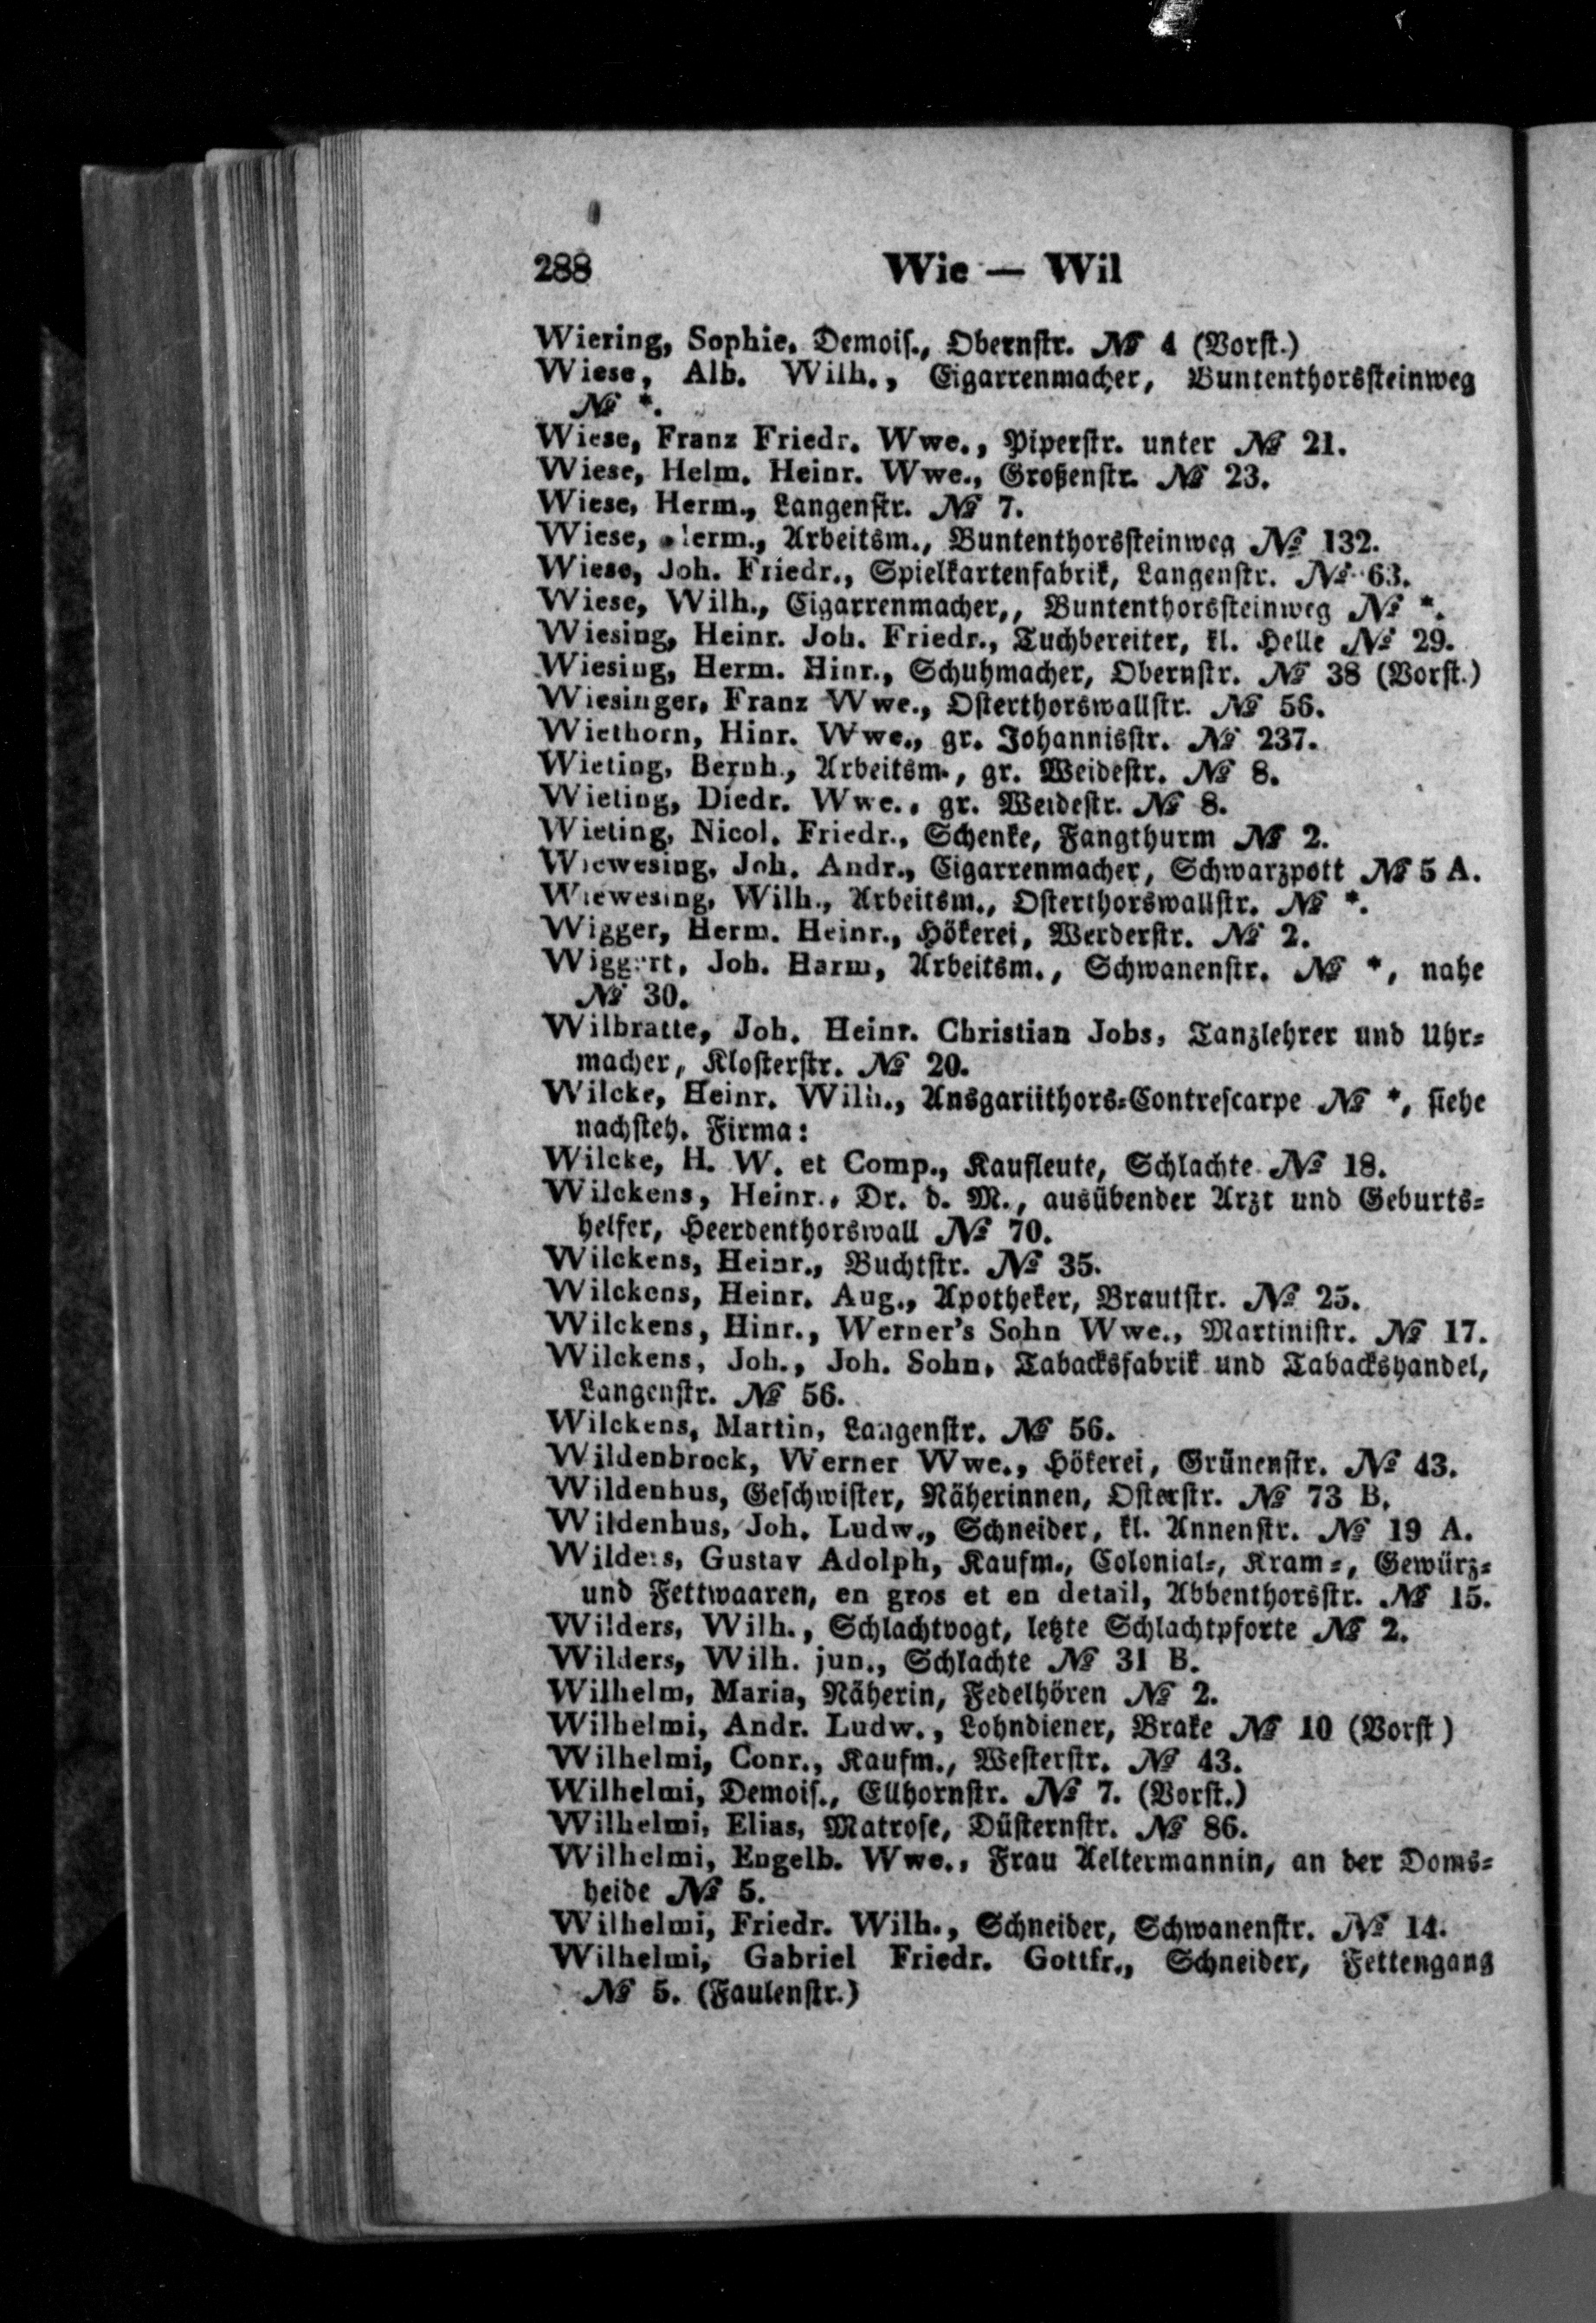 288 Wie — Wil
Wiering, Sophie, Demois., Obernstr. № 4 (Vorst.)
Wiese, Alb. Wilh., Cigarrenmacher, Buntenthorssteinweg
№ *.
Wiese, Franz Friedr. Wwe., Piperstr. unter № 21.
Wiese, Helm. Heinr. Wwe., Großenstr. № 23.
Wiese, Herm., Langenstr. № 7.
Wiese, Herm., Arbeitsm., Buntenthorssteinweg № 132.
Wiese, Joh. Friedr., Spielkartenfabrik, Langenstr. № 63.
Wiese, Wilh., Cigarrenmacher,, Buntenthorssteinweg № *.
Wiesing, Heinr. Joh. Friedr., Tuchbereiter, kl. Helle № 29.
Wiesing, Herm. Hinr., Schuhmacher, Obernstr. № 38 (Vorst.)
Wiesinger, Franz Wwe., Osterthorswallstr. № 56.
Wiethorn, Hinr. Wwe., gr. Johannisstr. № 237.
Wieting, Bernh., Arbeitsm., gr. Weidestr. № 8.
Wieting, Diedr. Wwe., gr. Weidestr. № 8.
Wieting, Nicol. Friedr., Schenke, Fangthurm № 2.
Wiewesing, Joh. Andr., Cigarrenmacher, Schwarzpott № 5 A.
Wiewesing, Wilh., Arbeitsm., Osterthorswallstr. № *.
Wigger, Herm. Heinr., Hökerei, Werderstr. № 2.
Wiggert, Joh. Harm, Arbeitsm., Schwanenstr. № *, nahe
№ 30.
Wilbratte, Joh. Heinr. Christian Jobs, Tanzlehrer und Uhr-
macher, Klosterstr. № 20.
Wilcke, Heinr. Wilh., Ansgariithors-Contrescarpe № *, siehe
nachsteh. Firma:
Wilcke, H. W. et Comp., Kaufleute, Schlachte № 18.
Wilckens, Heinr., Dr. d. M., ausübender Arzt und Geburts-
helfer, Heerdenthorswall № 70.
Wilckens, Heinr., Buchtstr. № 35.
Wilckens, Heinr. Aug., Apotheker, Brautstr. № 25.
Wilckens, Hinr., Werner's Sohn Wwe., Martinistr. № 17.
Wilckens, Joh., Joh. Sohn, Tabacksfabrik und Tabackshandel,
Langenstr. № 56.
Wilckens, Martin, Langenstr. № 56.
Wildenbrock, Werner Wwe., Hökerei, Grünenstr. № 43.
Wildenhus, Geschwister, Näherinnen, Osterstr. № 73 B.
Wildenhus, Joh. Ludw., Schneider, kl. Annenstr. № 19 A.
Wilders, Gustav Adolph, Kaufm., Colonial-, Kram-, Gewürz-
und Fettwaaren, en gros et en detail, Abbenthorsstr. № 15.
Wilders, Wilh., Schlachtvogt, letzte Schlachtpforte № 2.
Wilders, Wilh. jun., Schlachte № 31 B.
Wilhelm, Maria, Näherin, Fedelhören № 2.
Wilhelmi, Andr. Ludw., Lohndiener, Brake № 10 (Vorst)
Wilhelmi, Conr., Kaufm., Westerstr. № 43.
Wilhelmi, Demois., Ellhornstr. № 7. (Vorst.)
Wilhelmi, Elias, Matrose, Düsternstr. № 86.
Wilhelmi, Engelb. Wwe., Frau Aeltermannin, an der Doms-
heide № 5.
Wilhelmi, Friedr. Wilh., Schneider, Schwanenstr. № 14.
Wilhelmi, Gabriel Friedr. Gottfr., Schneider, Fettengang
№ 5. (Faulenstr.)